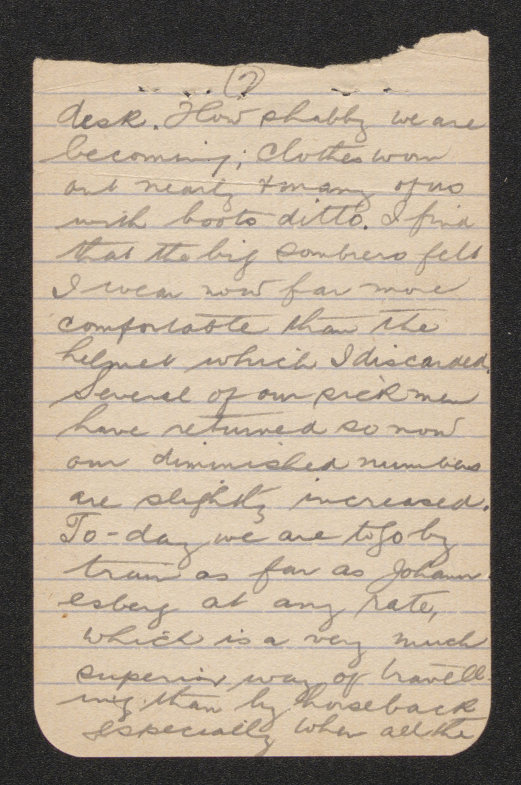 (7)
desk. How shabby we are
becoming; clothes worn
out nearly & many of us
with boots ditto. I find
that the big sombrero felt
I wear now far more
comfortable than the
helmet which I discarded.
Several of our sick men
have returned so now
our diminished numbers
are slightly increased.
To-day we are to go by
train as far as Johann-
esberg at any rate,
which is a very much
superior way of travell-
ing than by horseback
especially when all the